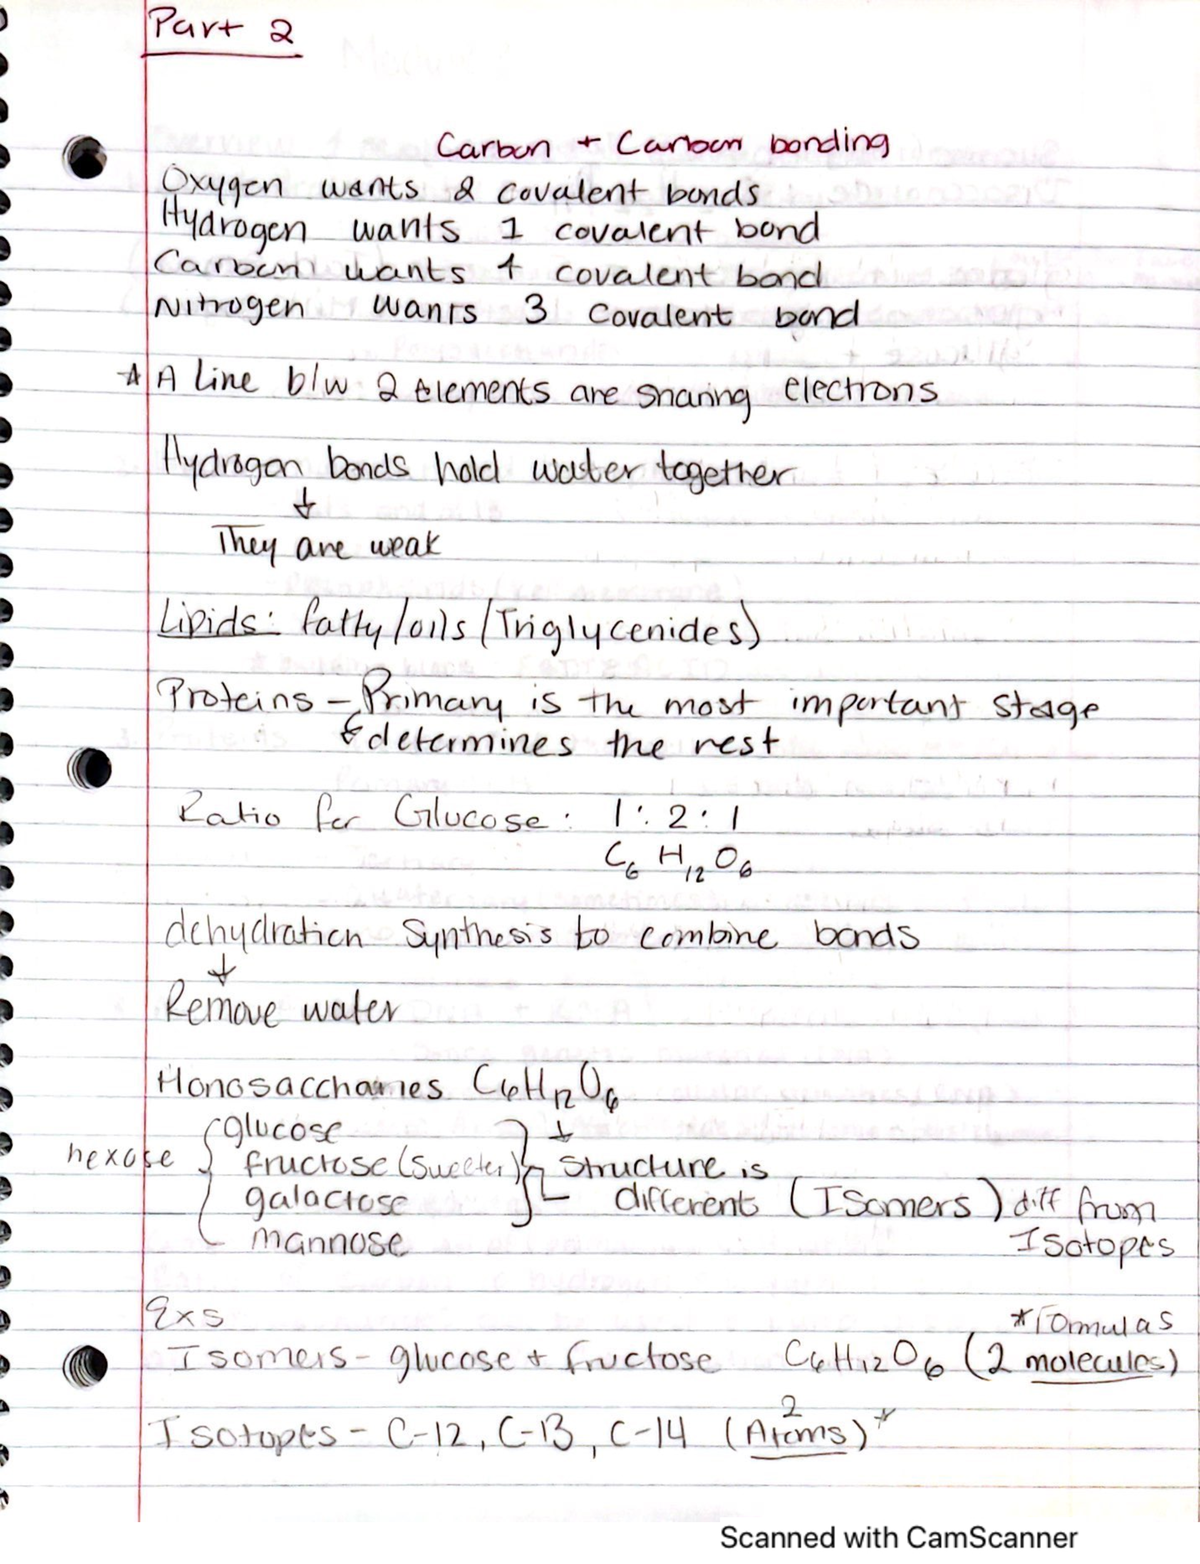 Part 2
Carbon + Carbon bonding
Oxygen wants 2 covalent bonds
Hydrogen wants 1 covalent bond
Carbon wants 4 covalent bond
Nitrogen wants 3 covalent bond
* A Line b/w 2 Elements are sharing electrons
Hydrogen bonds hold water together
↓
They are weak
Lipids: fatty/oils (Triglycerides)
Proteins - Primary is the most important stage
↳ determines the rest
Ratio for Glucose: 1:2:1
C6 H12 O6
dehydration synthesis to combine bonds
↓
Remove water
Monosaccharies C6H12O6
glucose ↓
hexose fructose (sweeter) structure is
galactose differents (Isomers) diff from
mannose Isotopes
Exs *Formulas
Isomers - glucose + fructose C6H12O6 (2 molecules)
2
Isotopes - C-12, C-13, C-14 (Atoms)*
Scanned with CamScanner